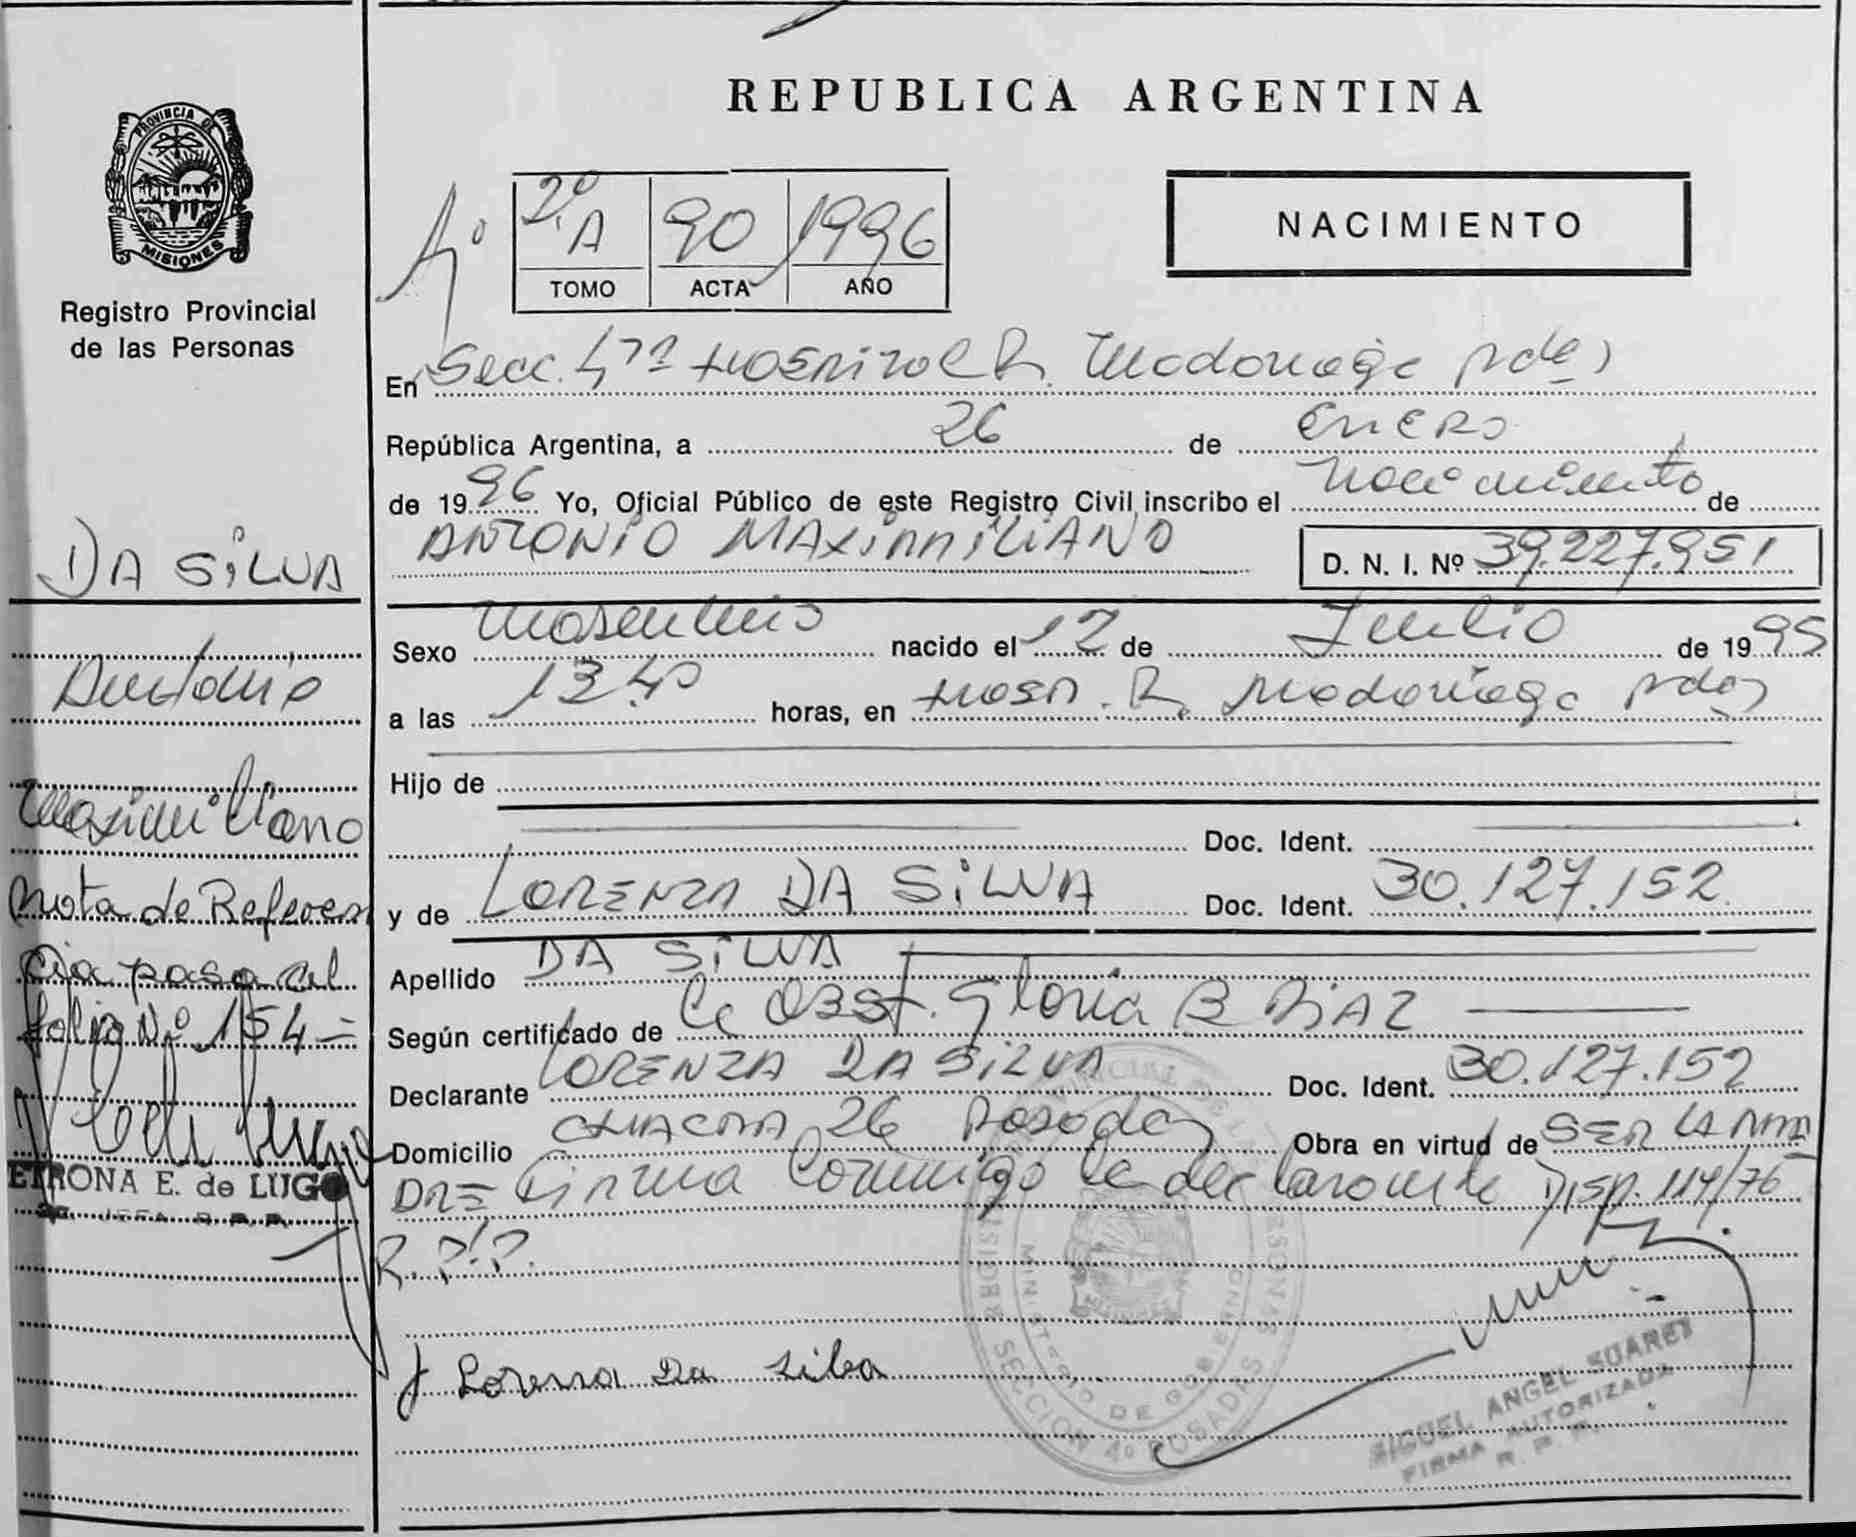 PROVINCIA DE
MISIONES
Registro Provincial
de las Personas
DA SILVA
Antonio
Maximiliano
Nota de Referen
cia pasa al
folio Nº 154=
PETRONA E. de LUGO
JEFA R. P. P.
REPUBLICA ARGENTINA
2º A 90 1996
TOMO ACTA AÑO
NACIMIENTO
En Secc. 4ta Hospital R. Madariaga Pdas
República Argentina, a 26 de Enero
de 1996 Yo, Oficial Público de este Registro Civil inscribo el Nacimiento de
ANTONIO MAXIMILIANO D. N. I. Nº 39.227.951
Sexo Masculino nacido el 12 de Julio de 1995
a las 13.40 horas, en Hosp. R. Madariaga Pdas
Hijo de
Doc. Ident.
y de LORENZA DA SILVA Doc. Ident. 30.127.152
Apellido DA SILVA
Según certificado de la Obst. Gloria B DIAZ
Declarante LORENZA DA SILVA Doc. Ident. 30.127.152
Domicilio CHACRA 26 Posadas Obra en virtud de SER LA MA
DRE Firma Conmigo la declarante Disp. 114/76
R.P.P.
Lorensa Da Silba
MINISTERIO DE GOBIERNO
SECCION 4º POSADAS
MIGUEL ANGEL SUAREZ
FIRMA AUTORIZADA
R. P. P.